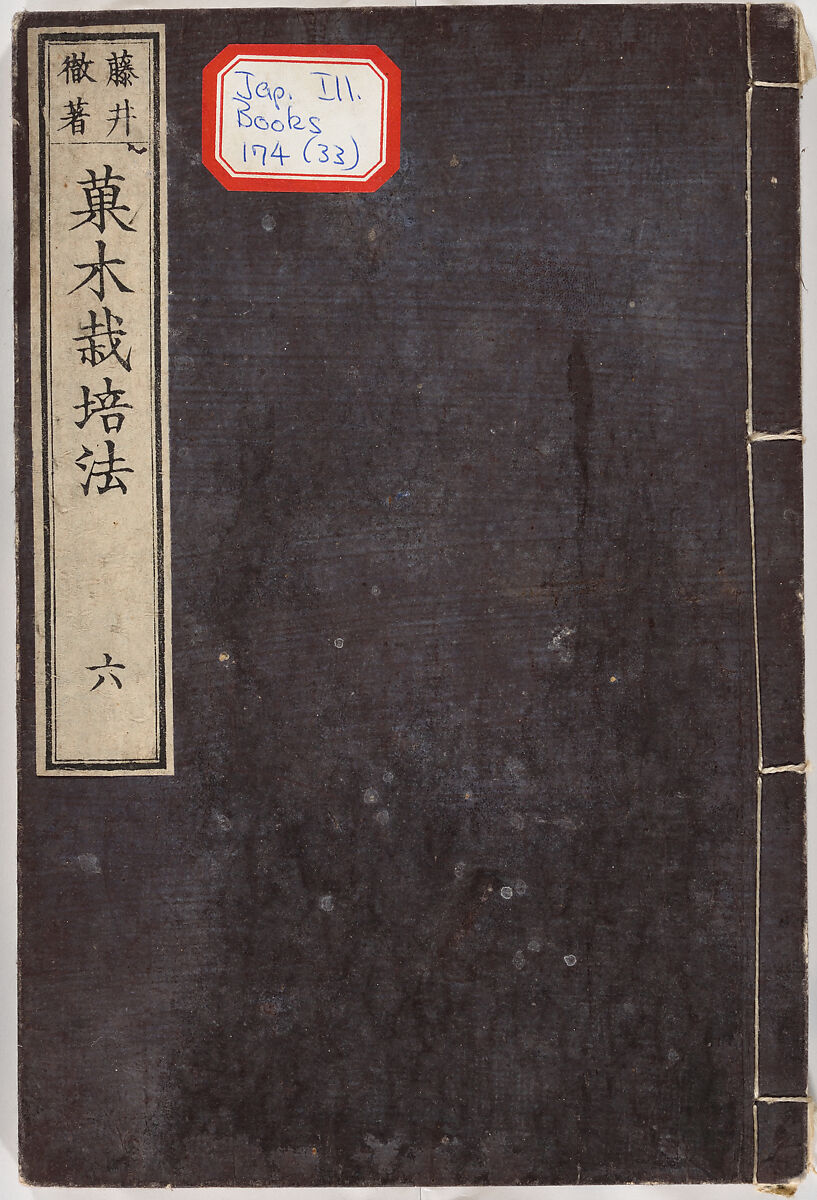 藤井
徹著
菓木栽培法
六
Jap. Ill.
Books
174 (33)